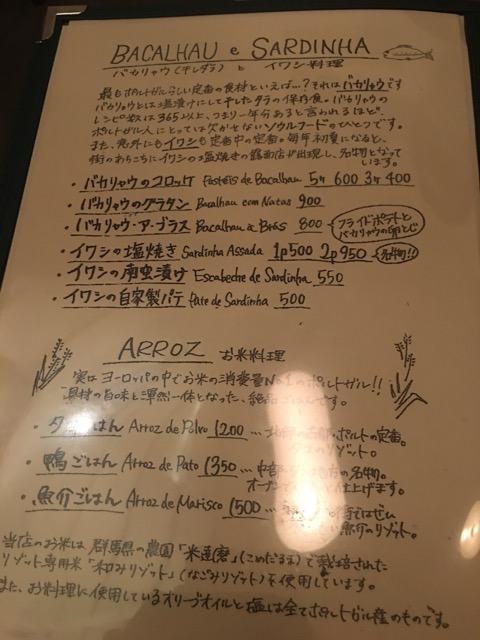 BACALHAU e SARDINHA
バカリャウ(干しダラ) と イワシ料理
最もポルトガルらしい定番の食材といえば…? それはバカリャウです
バカリャウとは塩漬けにして干したタラの保存食。バカリャウの
レシピ数は365以上、つまり一年分あると言われるほど、
ポルトガル人にとっては欠かせないソウルフードのひとつです。
また、意外にもイワシも定番中の定番。毎年初夏になると、
街のあちこちにイワシの塩焼きの露店が出現し、名物となって
います。
・バカリャウのコロッケ Pastéis de Bacalhau 5ヶ 600 3ヶ 400
・バカリャウのグラタン Bacalhau com Natas 900
・バカリャウ・ア・ブラス Bacalhau à Brás 800 フライドポテトと
バカリャウの卵とじ
・イワシの塩焼き Sardinha Assada 1p500 2p950 名物!!
・イワシの南蛮漬け Escabeche de Sardinha 550
・イワシの自家製パテ Pate de Sardinha 500
ARROZ お米料理
実は ヨーロッパの中でお米の消費量No.1のポルトガル!!
具材の旨味と渾然一体となった、絶品ごはんです。
・タコごはん Arroz de Polvo 1200 … ポルトの定番。
タコのリゾット。
・鴨ごはん Arroz de Pato 1350 … 地方の名物。
オーブンで 仕上げます。
・魚介ごはん Arroz de Marisco 1500 … 街ではぜい
魚介のリゾット。
当店のお米は 群馬県の農園「米達磨」(こめだるま)で栽培された
リゾット専用米「和みリゾット」(なごみリゾット)を使用しています。
また、お料理に使用しているオリーブオイルと塩は全てポルトガル産のものです。